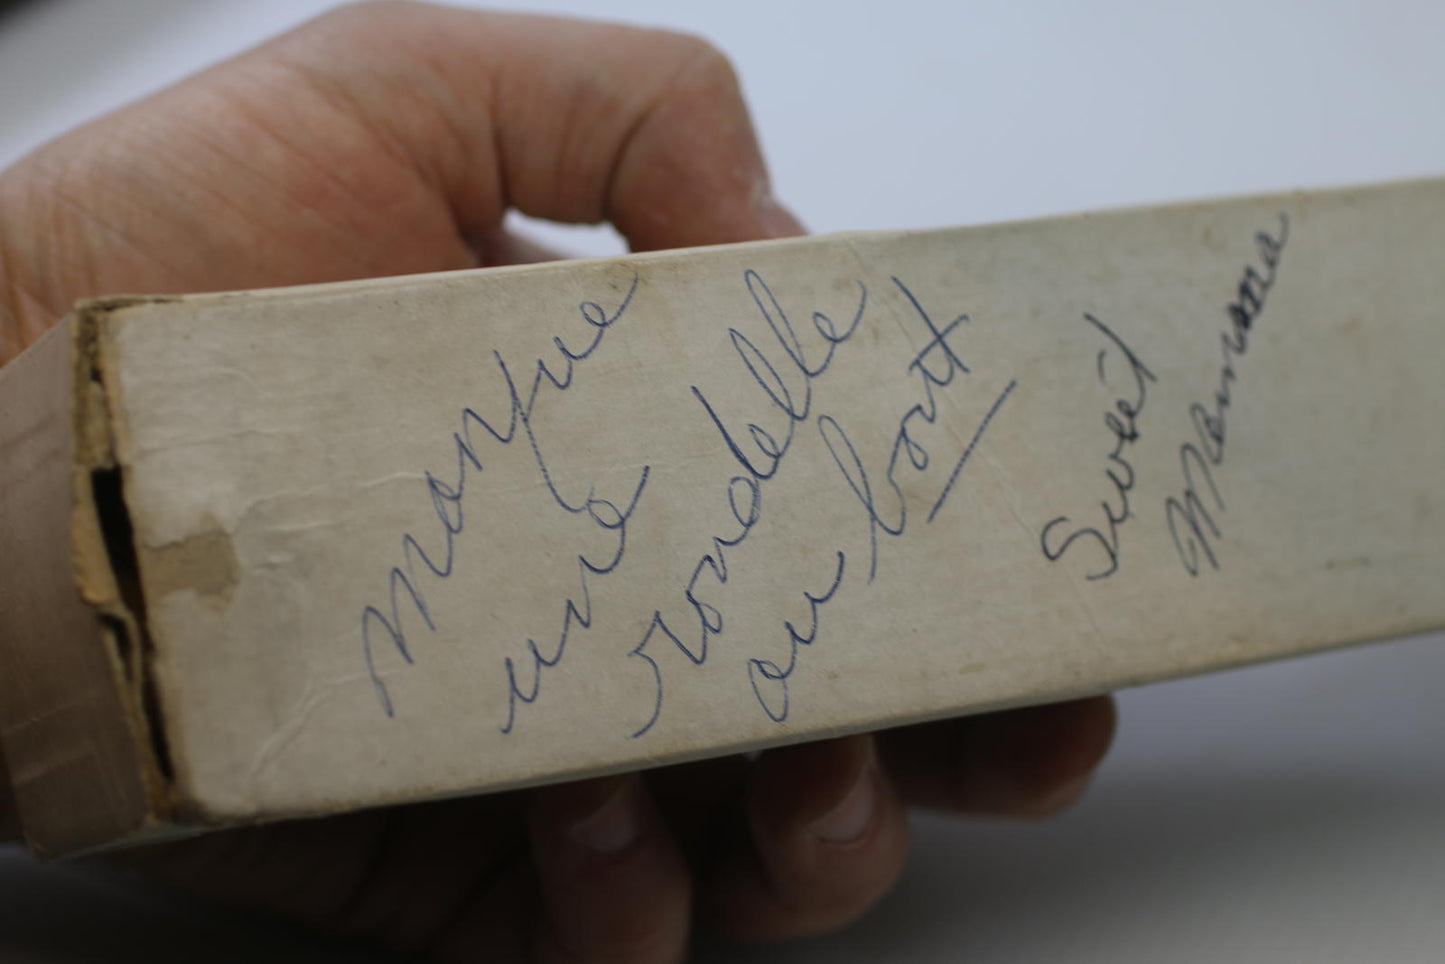 manque
une
rondelle
au bout
Sweet
Mamma